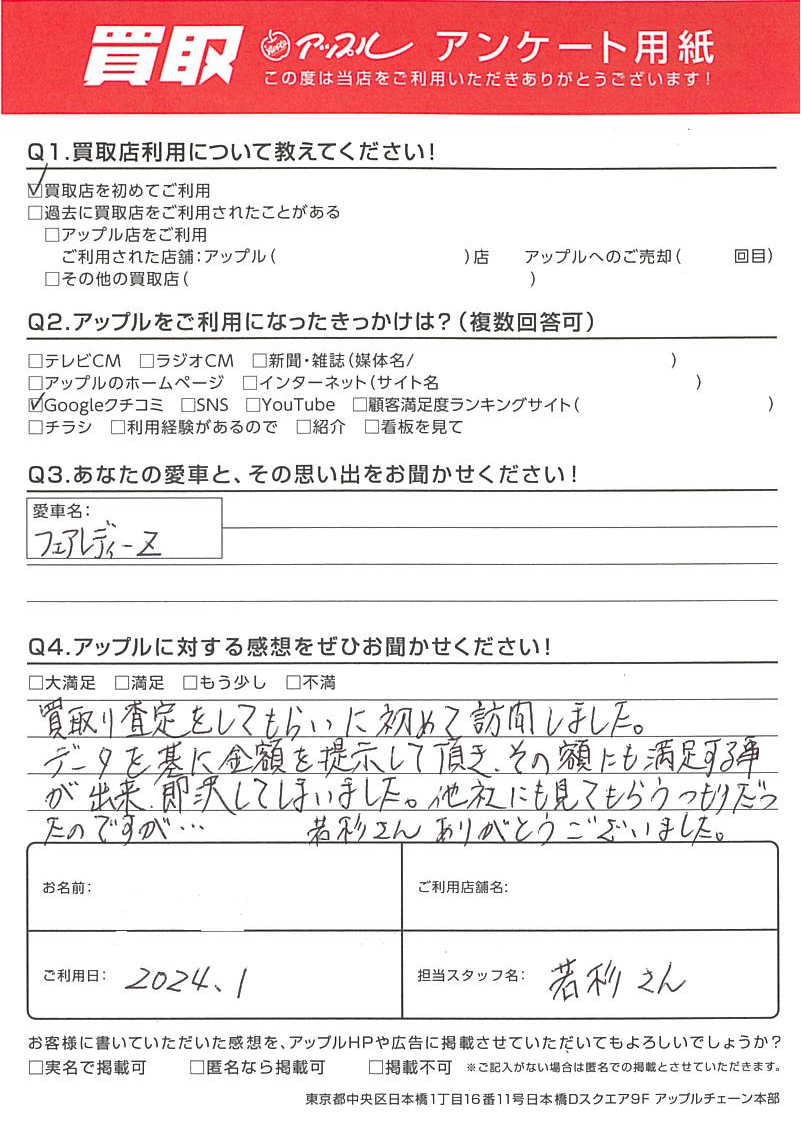 買取 アップル アンケート用紙
この度は当店をご利用いただきありがとうございます!
Q1.買取店利用について教えてください!
☑買取店を初めてご利用
□過去に買取店をご利用されたことがある
□アップル店をご利用
ご利用された店舗:アップル( )店 アップルへのご売却( 回目)
□その他の買取店( )
Q2.アップルをご利用になったきっかけは?(複数回答可)
□テレビCM □ラジオCM □新聞・雑誌(媒体名/ )
□アップルのホームページ □インターネット(サイト名 )
☑Googleクチコミ □SNS □YouTube □顧客満足度ランキングサイト( )
□チラシ □利用経験があるので □紹介 □看板を見て
Q3.あなたの愛車と、その思い出をお聞かせください!
愛車名:
フェアレディーZ
Q4.アップルに対する感想をぜひお聞かせください!
□大満足 □満足 □もう少し □不満
買取り査定をしてもらいに初めて訪問しました。
データを基に金額を提示して頂き、その額にも満足する事
が出来、即決してしまいました。他社にも見てもらうつもりだっ
たのですが… 若杉さんありがとうございました。
お名前: ご利用店舗名:
ご利用日: 2024.1 担当スタッフ名: 若杉さん
お客様に書いていただいた感想を、アップルHPや広告に掲載させていただいてもよろしいでしょうか?
□実名で掲載可 □匿名なら掲載可 □掲載不可 ※ご記入がない場合は匿名での掲載とさせていただきます。
東京都中央区日本橋1丁目16番11号日本橋Dスクエア9F アップルチェーン本部